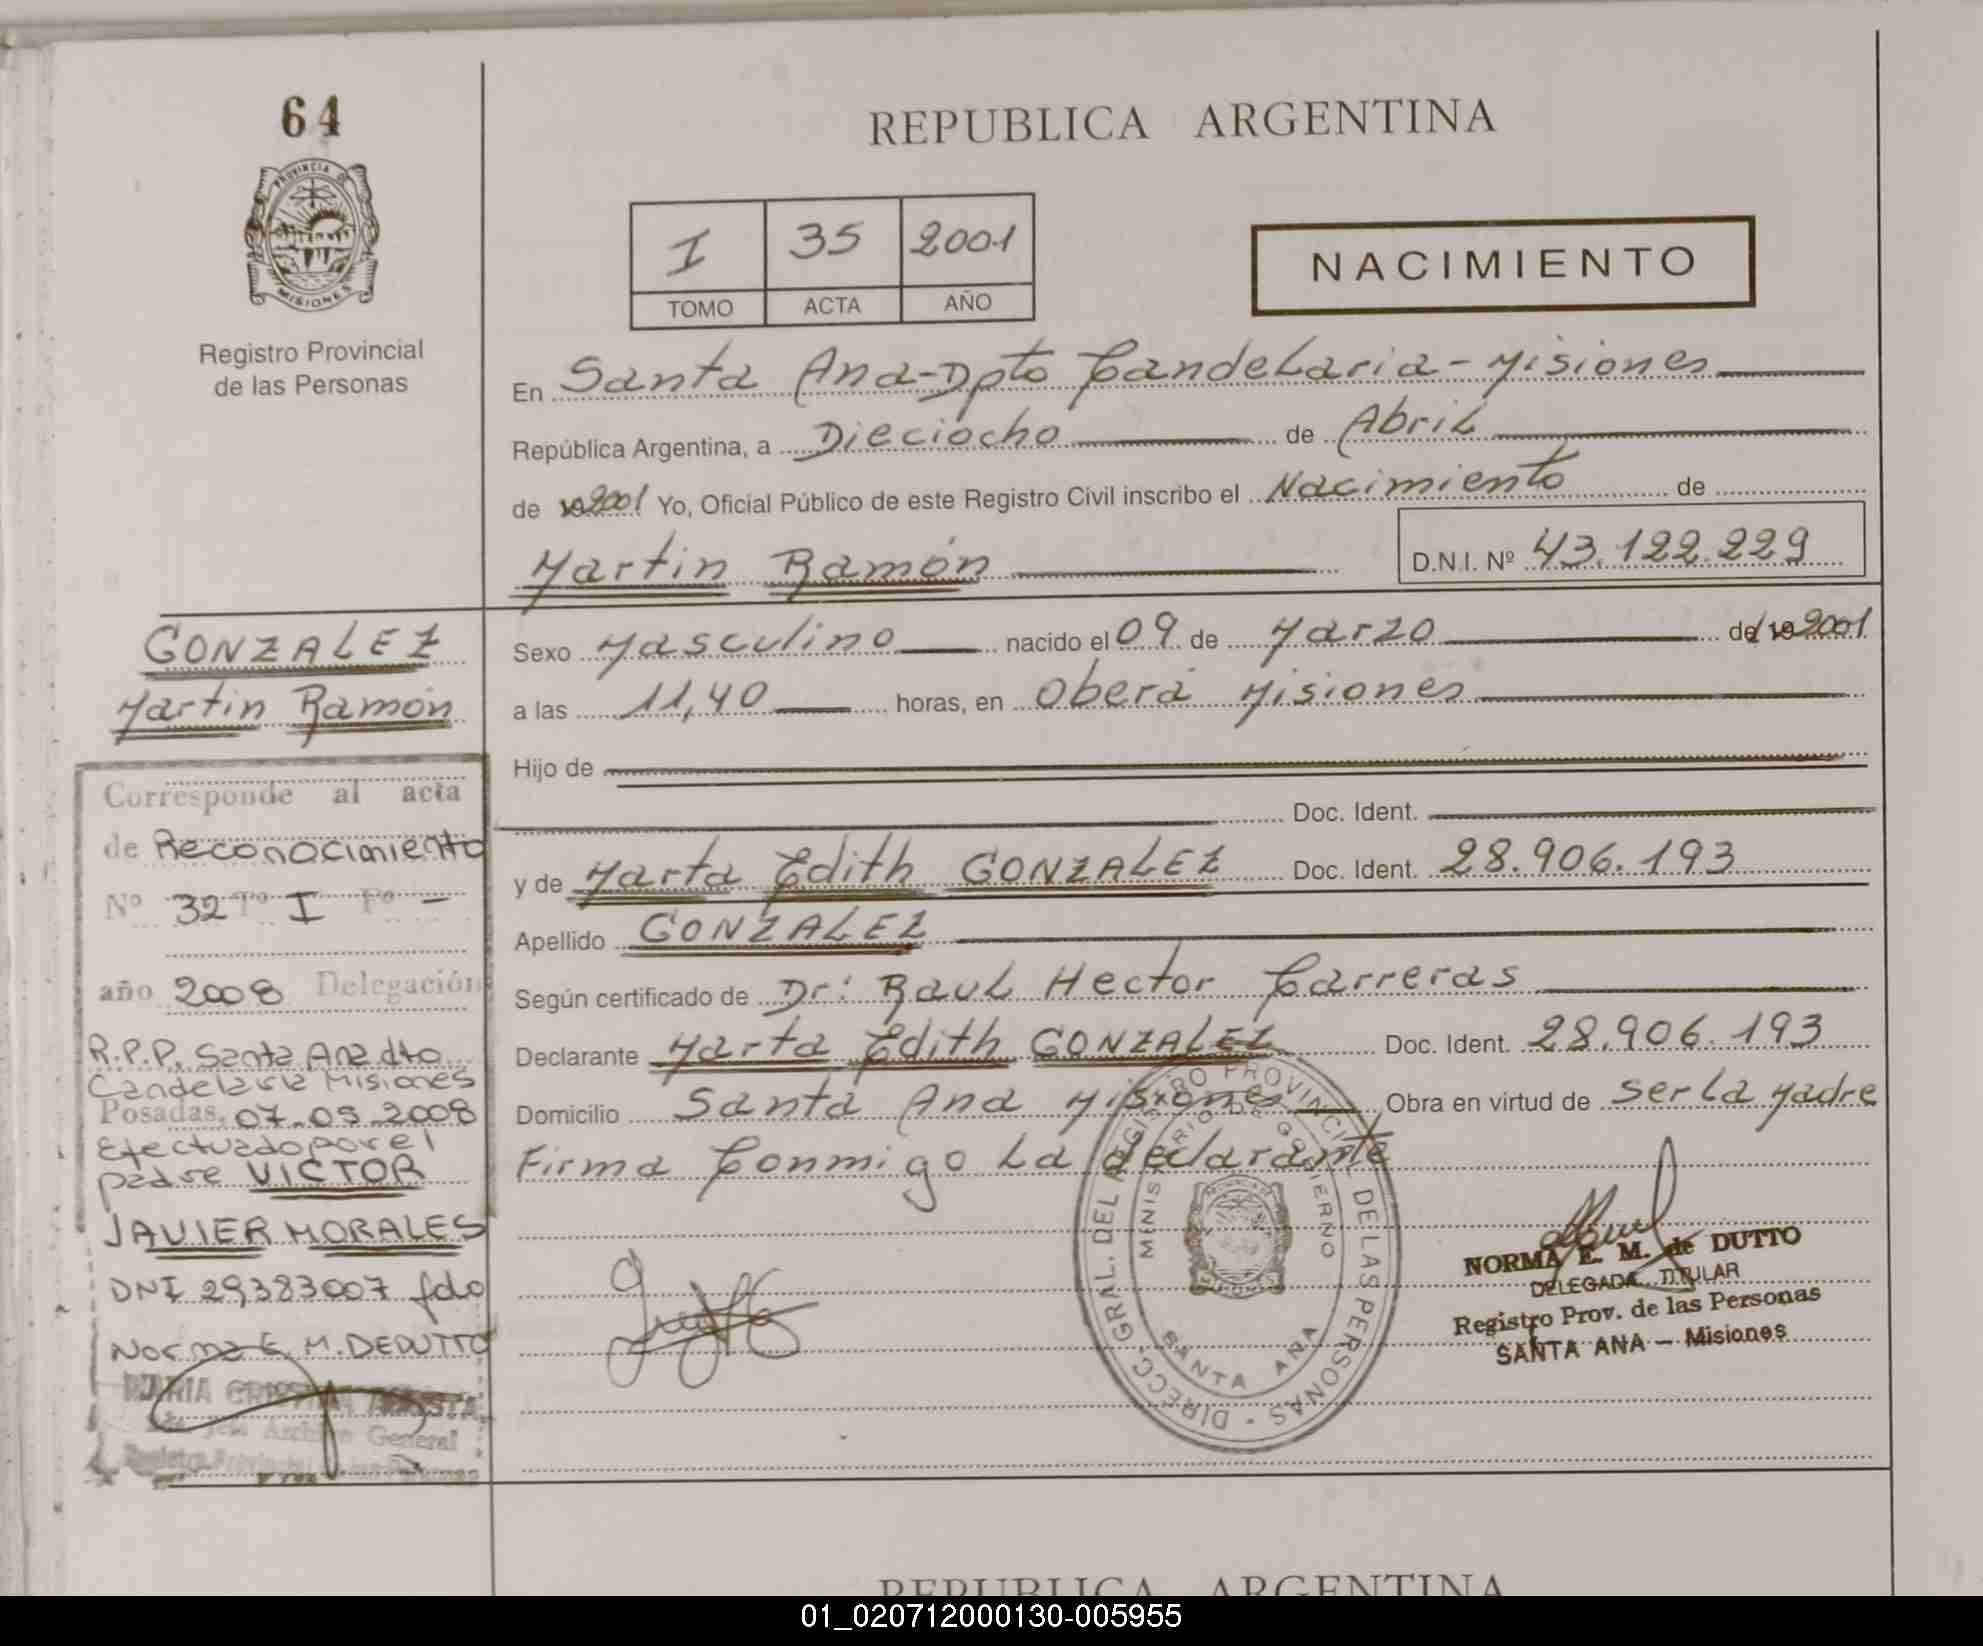 64
PROVINCIA DE
MISIONES
Registro Provincial
de las Personas
REPUBLICA ARGENTINA
I 35 2001
TOMO ACTA AÑO
NACIMIENTO
En Santa Ana-Dpto Candelaria - Misiones
República Argentina, a Dieciocho de Abril
de 192001 Yo, Oficial Público de este Registro Civil inscribo el Nacimiento de
Martin Ramón D.N.I. Nº 43.122.229
GONZALEZ
Martin Ramón
Sexo Masculino nacido el 09 de Marzo de 19 2001
a las 11,40 horas, en Oberá Misiones
Hijo de
Doc. Ident.
y de Marta Edith GONZALEZ Doc. Ident. 28.906.193
Apellido GONZALEZ
Según certificado de Dr: Raul Hector Carreras
Declarante Marta Edith GONZALEZ Doc. Ident. 28.906.193
Domicilio Santa Ana Misiones Obra en virtud de ser la Madre
Firma Conmigo la declarante
Corresponde al acta
de Reconocimiento
Nº 32 Tº I Fº -
año 2008 Delegación
R.P.P. Santa Ana dto
Candelaria Misiones
Posadas, 07-05-2008
Efectuado por el
padre VICTOR
JAVIER MORALES
DNI 29383007 fdo
Norma E. M. DEDUTTO
MARIA CRISTINA
Jefa Archivo General
DIRECC. GRAL. DEL REGISTRO PROVINCIAL DE LAS PERSONAS -
MINISTERIO DE GOBIERNO
SANTA ANA
NORMA E. M. de DUTTO
DELEGADA TITULAR
Registro Prov. de las Personas
SANTA ANA - Misiones
REPUBLICA ARGENTINA
01_020712000130-005955